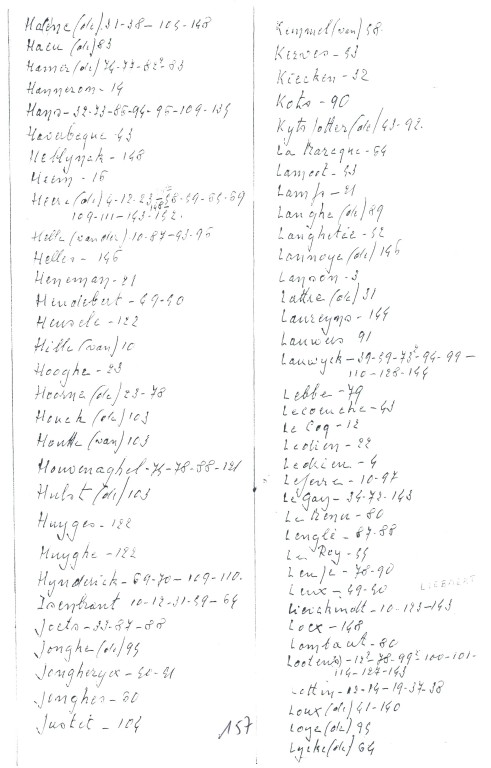 Halène (de) 31-38 - 104-148
Haeu (de) 83
Hamer (de) 74-77-82²-83
Hanneron - 14
Hans - 32-73-85-94-95-109-134
Haverbeque 43
Heblynck - 148
Heem - 15
Heere (de) 4-12-23-
109-111-143-152.
Helle (vander) 10-87-93-95
Helles - 146
Heneman - 21
Heudebert - 49-50
Heusele - 122
Hille (van) 10
Hooghe - 23
Hoorne (de) 23-78
Houck (de) 103
Houtte (van) 103
Houvenaghel - 74-78-88-121
Hulst (de) 103
Huyges - 122
Huyghe - 122
Hynderick - 69-70 - 109-110.
Isenbrant 10-12-31-59-64
Joets - 33-87-88
Jonghe (de) 94
Jongheryck - 50-91
Jonghes - 60
Justet - 104
157
Kemmel (van) 58
Kerves - 43
Kiecken - 32
Kots - 90
Kytspotter (de) 43-92.
La Bazeque - 64
Lamoot - 43
Lamps - 21
Langhe (de) 89
Langhetée - 52
Lannoye (de) 146
Lanson - 3
Lattre (de) 31
Laureyns - 144
Lauwers 91
Lauwyck - 39-59-73²-94-99-
110-128-144
Lebbe - 79
Lecouche - 43
Le Coq - 12
Ledien - 22
Ledrieu - 4
Lefevre - 10-97
Le Gay - 34-72-143
Le Renu - 80
Lenglé - 87-88
Le Roy - 44
Leuje - 78-90
Leux - 49-50
Lievehendt - 10-123-143
Locx - 148
Lombaut - 80
Lootens - 12²-78-99²-100-101-
114-127-143
Lottin - 13-14-19-37-38
Loux (de) 41-140
Loye (de) 94
Lycke (de) 64